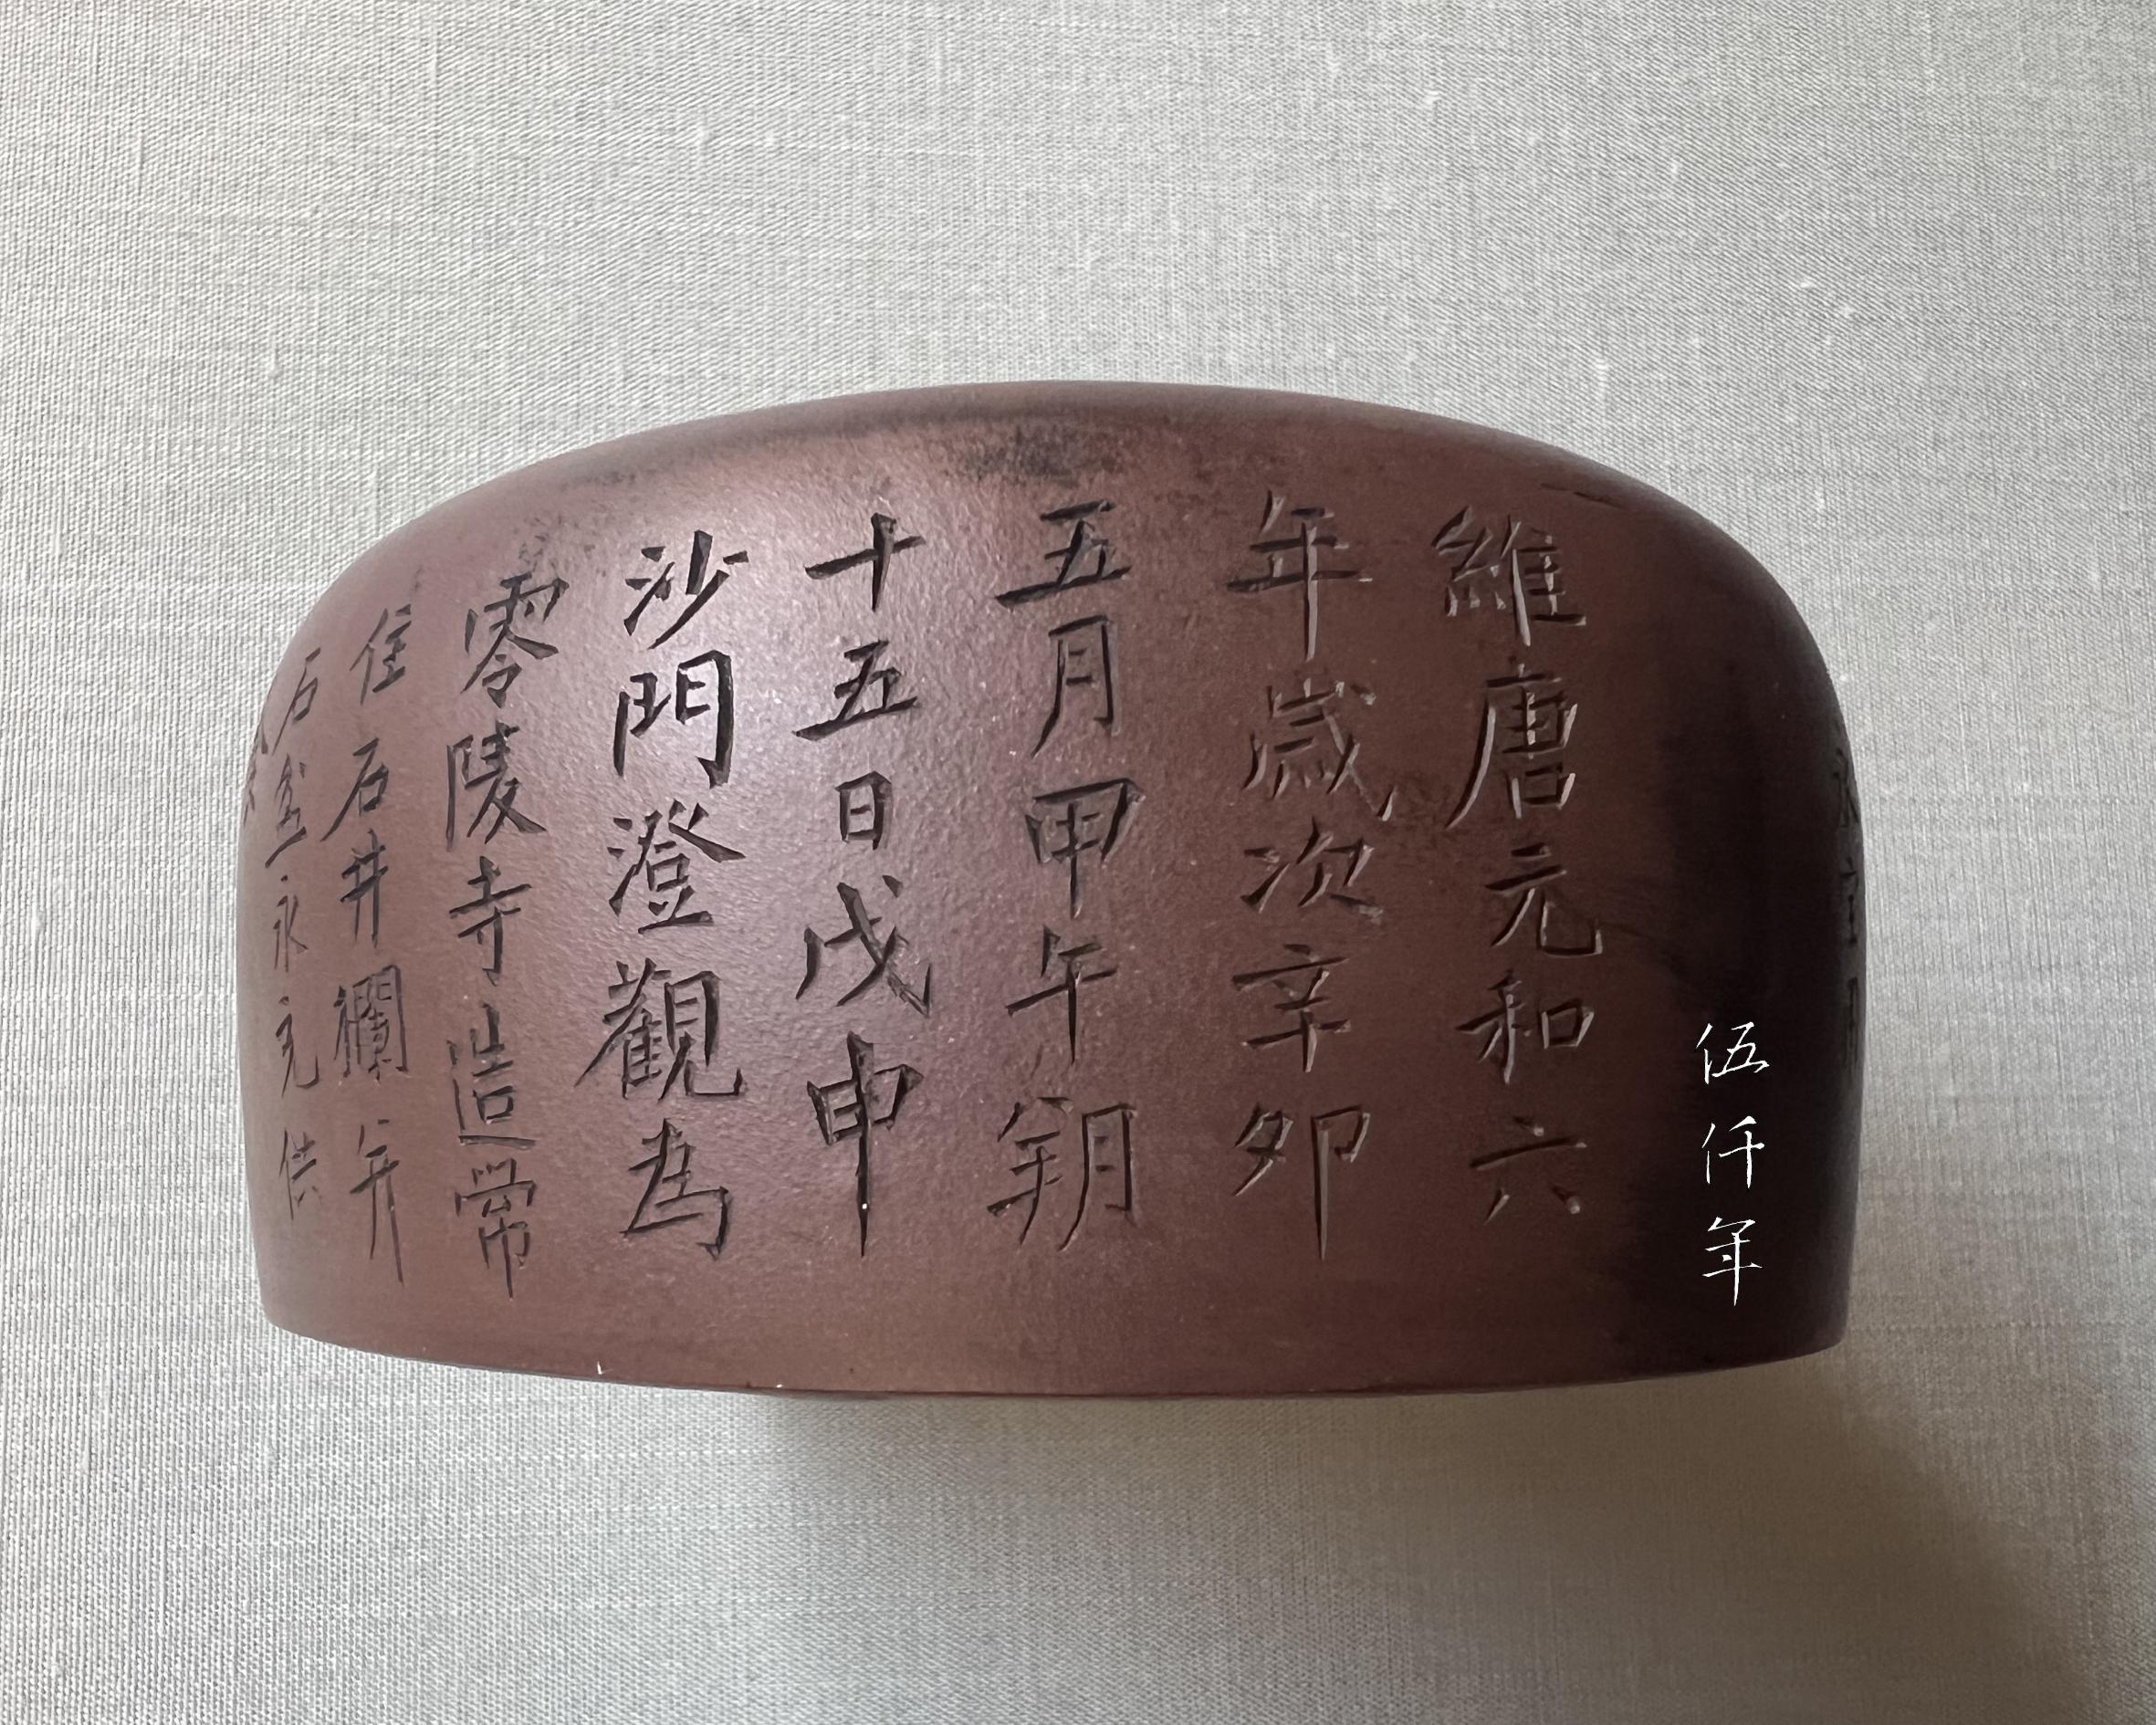 維唐元和六
年歲次辛卯
五月甲午朔
十五日戊申
沙門澄觀為
零陵寺造常
住石井欄并
石盆永充供
伍仟年